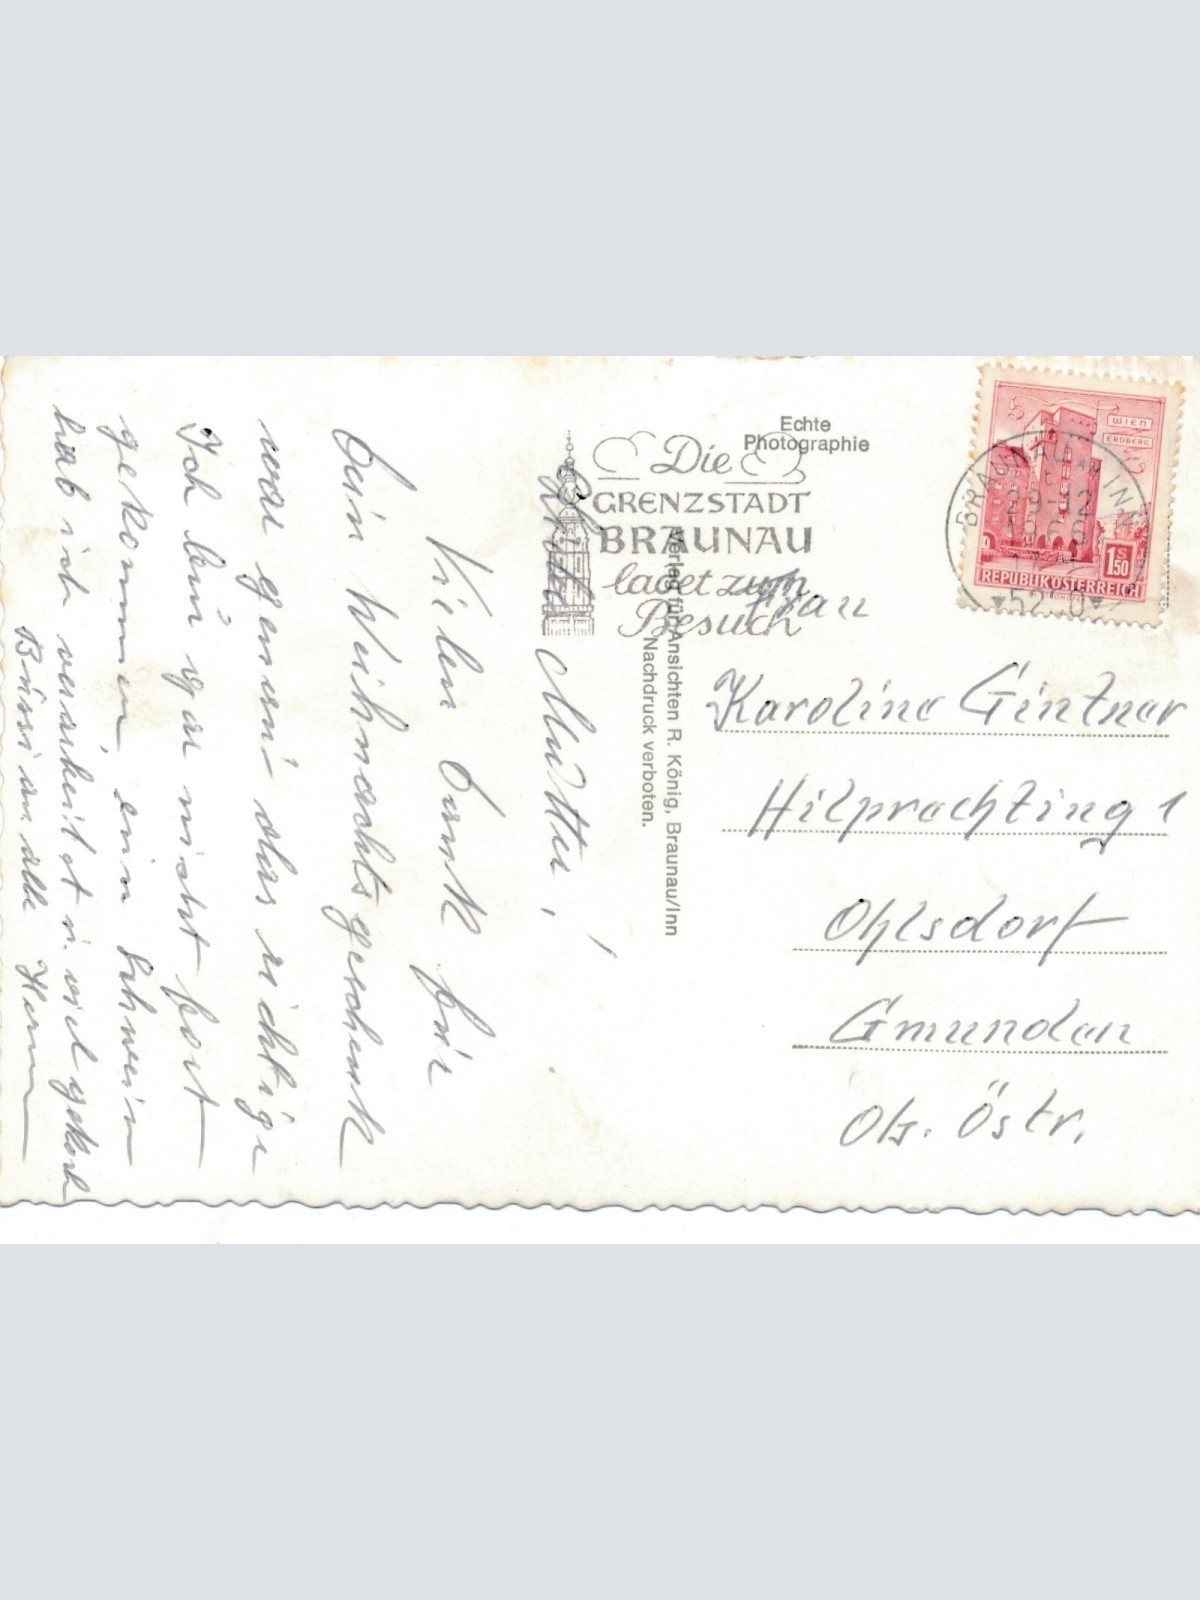 Echte
Photographie
Die
GRENZSTADT
BRAUNAU
ladet zum
Besuch
WIEN
ERDBERG
1 S 50
REPUBLIK ÖSTERREICH
BRAUNAU AM INN
29-12
5280
Verlag für Ansichten R. König, Braunau/Inn
Nachdruck verboten.
Frau
Karoline Gintner
Hilprechting 1
Ohlsdorf
Gmunden
Ob. Östr.
Mutter,
Vielen Dank für
Dein Weihnachtsgeschenk
war genau das richtige
Ich bin gar nicht fort
gekommen, ein Schwein
hab ich verarbeitet u. viel
Bussi an alle